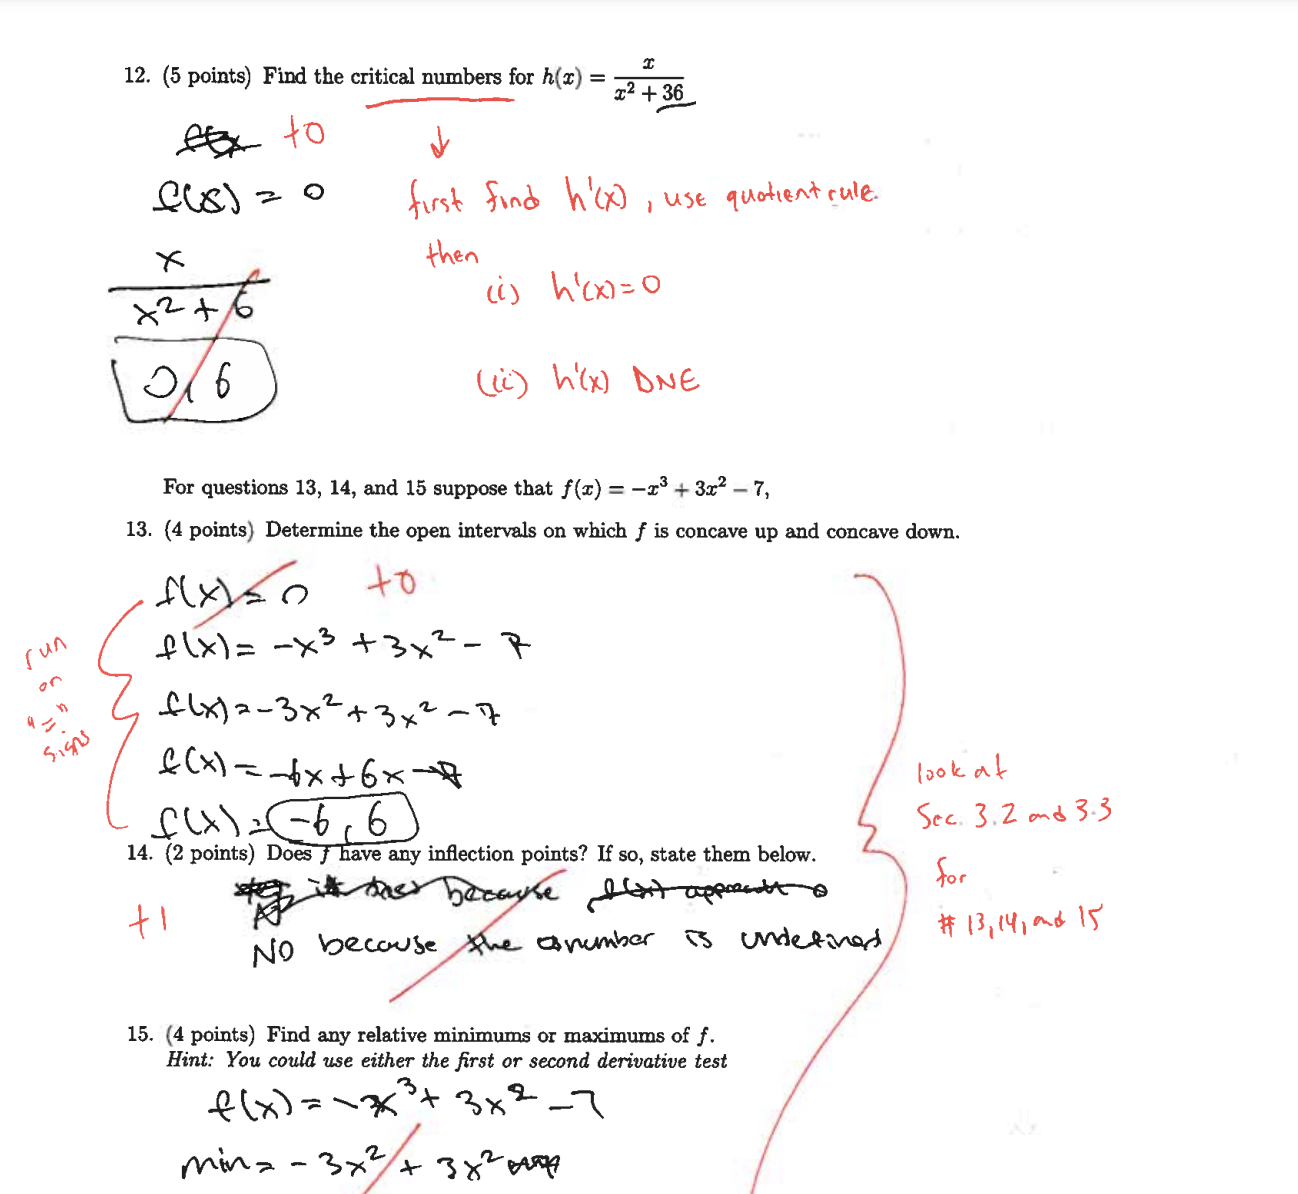 12. (5 points) Find the critical numbers for h(x) = x / x² + 36
+0
f(8) = 0
first find h'(x), use quotient rule.
x
x² + 6
then
(i) h'(x) = 0
0, 6
(ii) h'(x) DNE
For questions 13, 14, and 15 suppose that f(x) = −x³ + 3x² − 7,
13. (4 points) Determine the open intervals on which f is concave up and concave down.
f(x) = 0
+0
f(x) = -x³ + 3x² - 7
run
on
"="
signs
f(x) = -3x² + 3x² - 7
f(x) = -6x + 6x - 7
f(x) = -6, 6
look at
Sec. 3.2 and 3.3
for
# 13, 14, and 15
14. (2 points) Does f have any inflection points? If so, state them below.
it does because f(x) 0
+1
No because the number is undefined
15. (4 points) Find any relative minimums or maximums of f.
Hint: You could use either the first or second derivative test
f(x) = -x³ + 3x² - 7
min = -3x² + 3x²